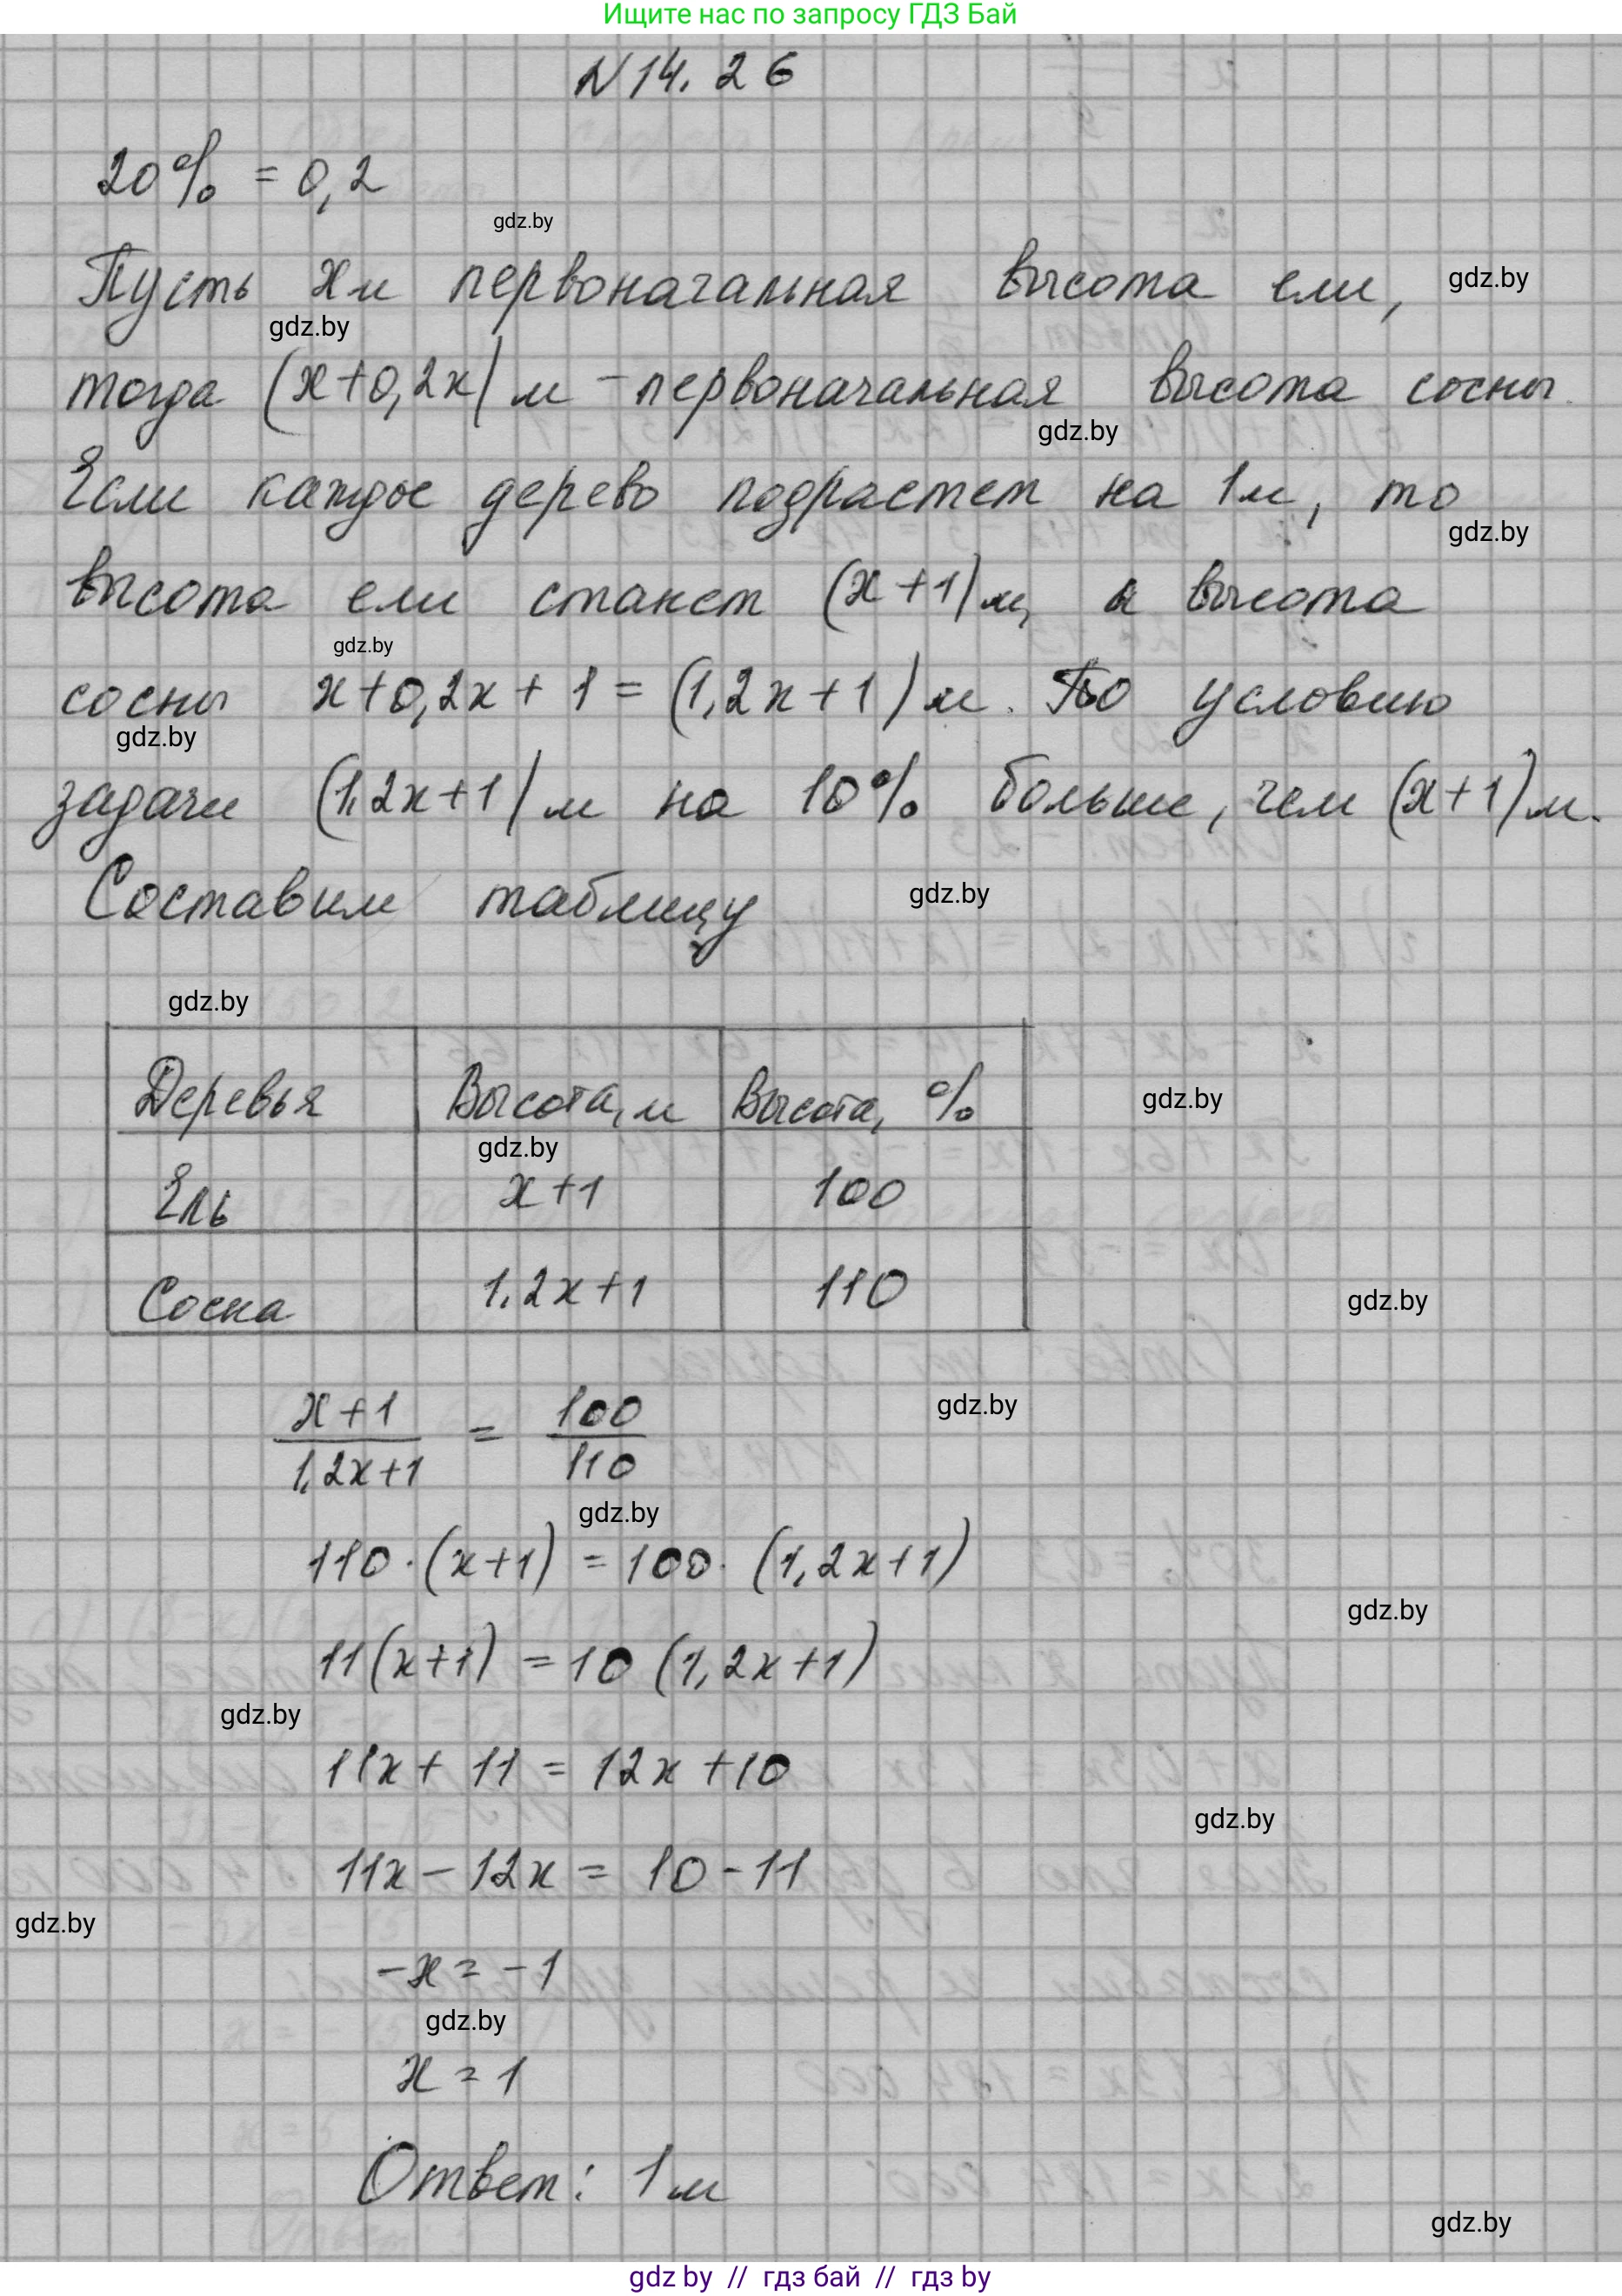 Ищите нас по запросу ГДЗ Бай
N 14.26
20% = 0,2
gdz.by
Пусть x м первоначальная высота ели,
gdz.by
gdz.by
тогда (x+0,2x) м - первоначальная высота сосны.
gdz.by
Если каждое дерево подрастет на 1м, то
gdz.by
высота ели станет (x+1)м, а высота
gdz.by
сосны x+0,2x+1=(1,2x+1)м. По условию
gdz.by
задачи (1,2x+1)м на 10% больше, чем (x+1)м.
Составим таблицу
gdz.by
gdz.by
Деревья Высота, м Высота, %
gdz.by
gdz.by
Ель x+1 100
Сосна 1,2x+1 110
gdz.by
(x+1)/(1,2x+1) = 100/110
gdz.by
gdz.by
110·(x+1) = 100·(1,2x+1)
gdz.by
11(x+1) = 10(1,2x+1)
gdz.by
11x + 11 = 12x + 10
gdz.by
11x - 12x = 10 - 11
gdz.by
-x = -1
gdz.by
x = 1
Ответ: 1м
gdz.by
gdz by // гдз бай // гдз by